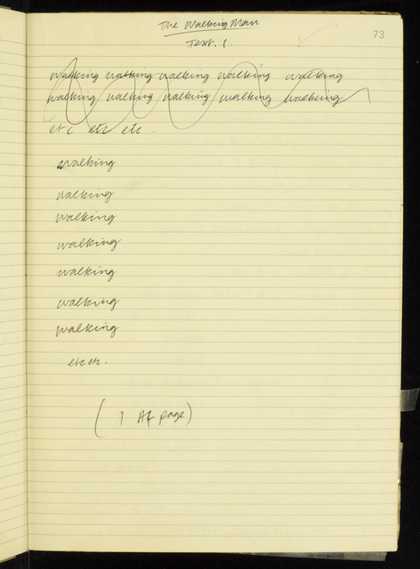 The Walking Man
Text. 1.
73
walking walking walking walking walking
walking walking walking walking walking
etc etc etc.
walking
walking
walking
walking
walking
walking
walking
etc etc.
(1 A4 page)